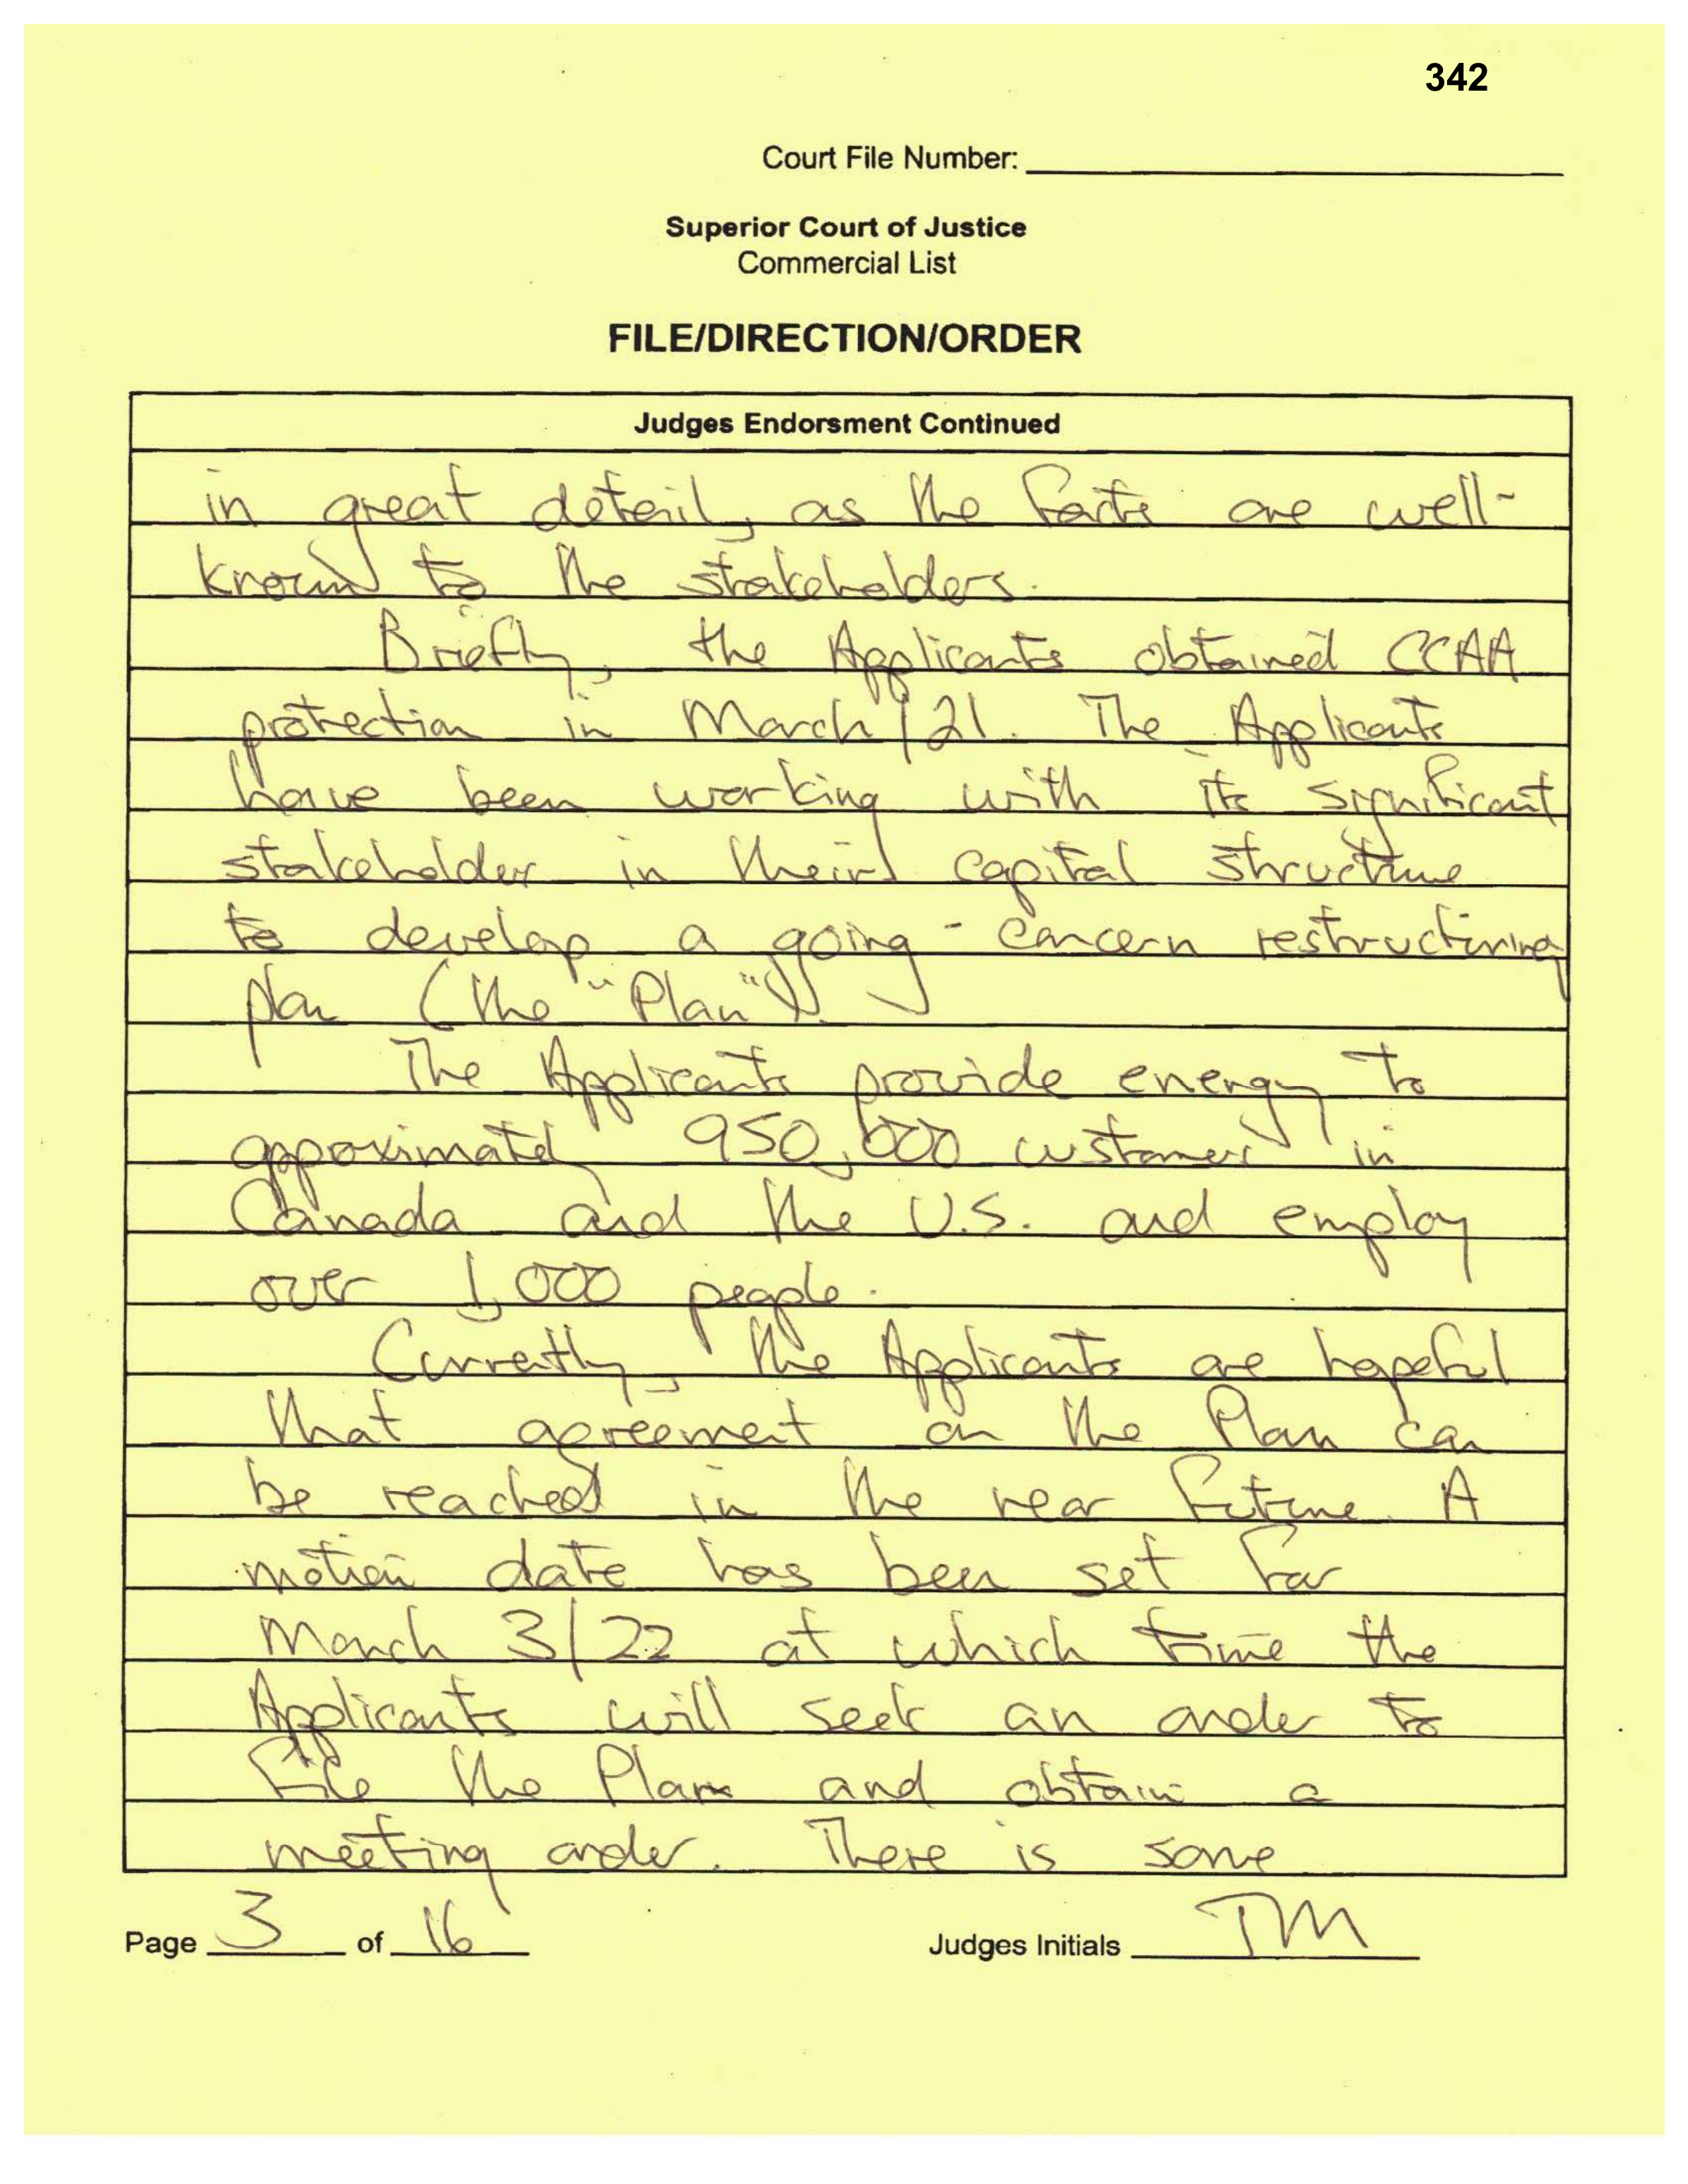 342
Court File Number:
Superior Court of Justice
Commercial List
FILE/DIRECTION/ORDER
Judges Endorsment Continued
in great detail, as the facts are well-
known to the stakeholders.
Briefly, the Applicants obtained CCAA
protection in March/21. The Applicants
have been working with its significant
stakeholder in their capital structure
to develop a going-concern restructuring
plan (the "Plan").
The Applicants provide energy to
approximately 950,000 customers in
Canada and the U.S. and employ
over 1,000 people.
Currently, the Applicants are hopeful
that agreement on the Plan can
be reached in the near future. A
motion date has been set for
March 3/22 at which time the
Applicants will seek an order to
file the Plan and obtain a
meeting order. There is some
Page 3 of 16 Judges Initials TM